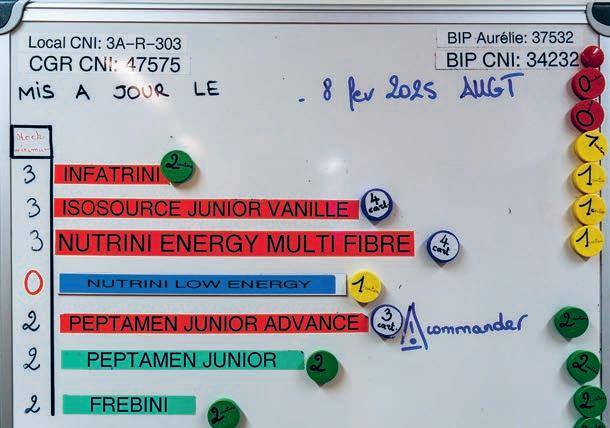 Local CNI: 3A-R-303
CGR CNI: 47575
BIP Aurélie: 37532
BIP CNI: 34232
MIS A JOUR LE 8 fev 2025
Stock
3 INFATRINI 2
3 ISOSOURCE JUNIOR VANILLE 4 cart.
3 NUTRINI ENERGY MULTI FIBRE 4 cart
0 NUTRINI LOW ENERGY 1
2 PEPTAMEN JUNIOR ADVANCE 3 cart. ! commander
2 PEPTAMEN JUNIOR 2
2 FREBINI 2
0
0
1
1
1
1
2
2
2